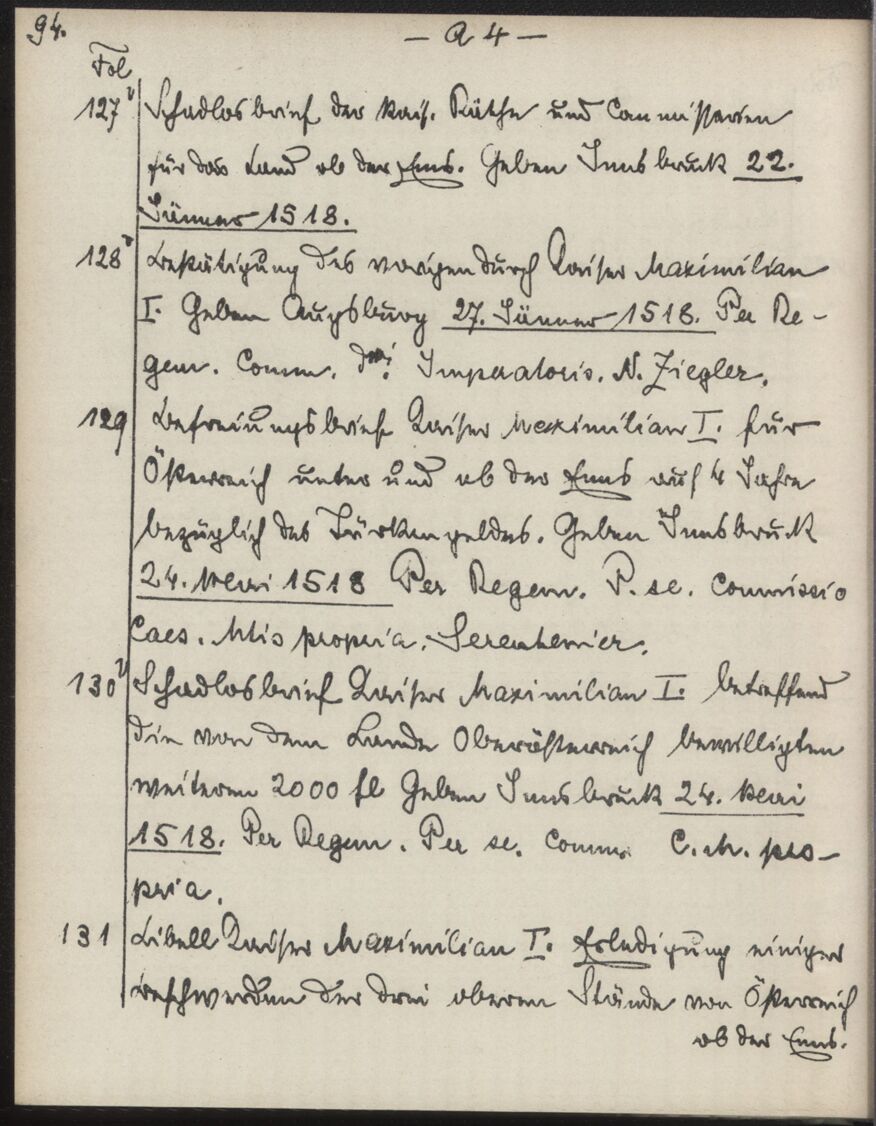 94.
— A 4 —
Fol
127v Schadlosbrief der kais. Räthe und Commissarien
für das Land ob der Enns. Geben Innsbruck 22.
Jänner 1518.
128v Bestätigung des vorigen durch Kaiser Maximilian
I. Geben Augsburg 27. Jänner 1518. Per Re-
gem. Comm. dni Imperatoris. N. Ziegler.
129 Befreiungsbrief Kaiser Maximilian I. für
Österreich unter und ob der Enns auf 4 Jahre
bezüglich des Türkengeldes. Geben Innsbruck
24. Mai 1518 Per Regem. P. se. Commissio
Caes. Mtis propria. Serentheiner.
130v Schadlosbrief Kaiser Maximilian I. betreffend
die von dem Lande Oberösterreich bewilligten
weiteren 2000 fl Geben Innsbruck 24. Mai
1518. Per Regem. Per se. Comm. C. M. pro-
pria.
131 Libell Kaiser Maximilian I. Erledigung einiger
Beschwerden der drei oberen Stände von Österreich
ob der Enns.